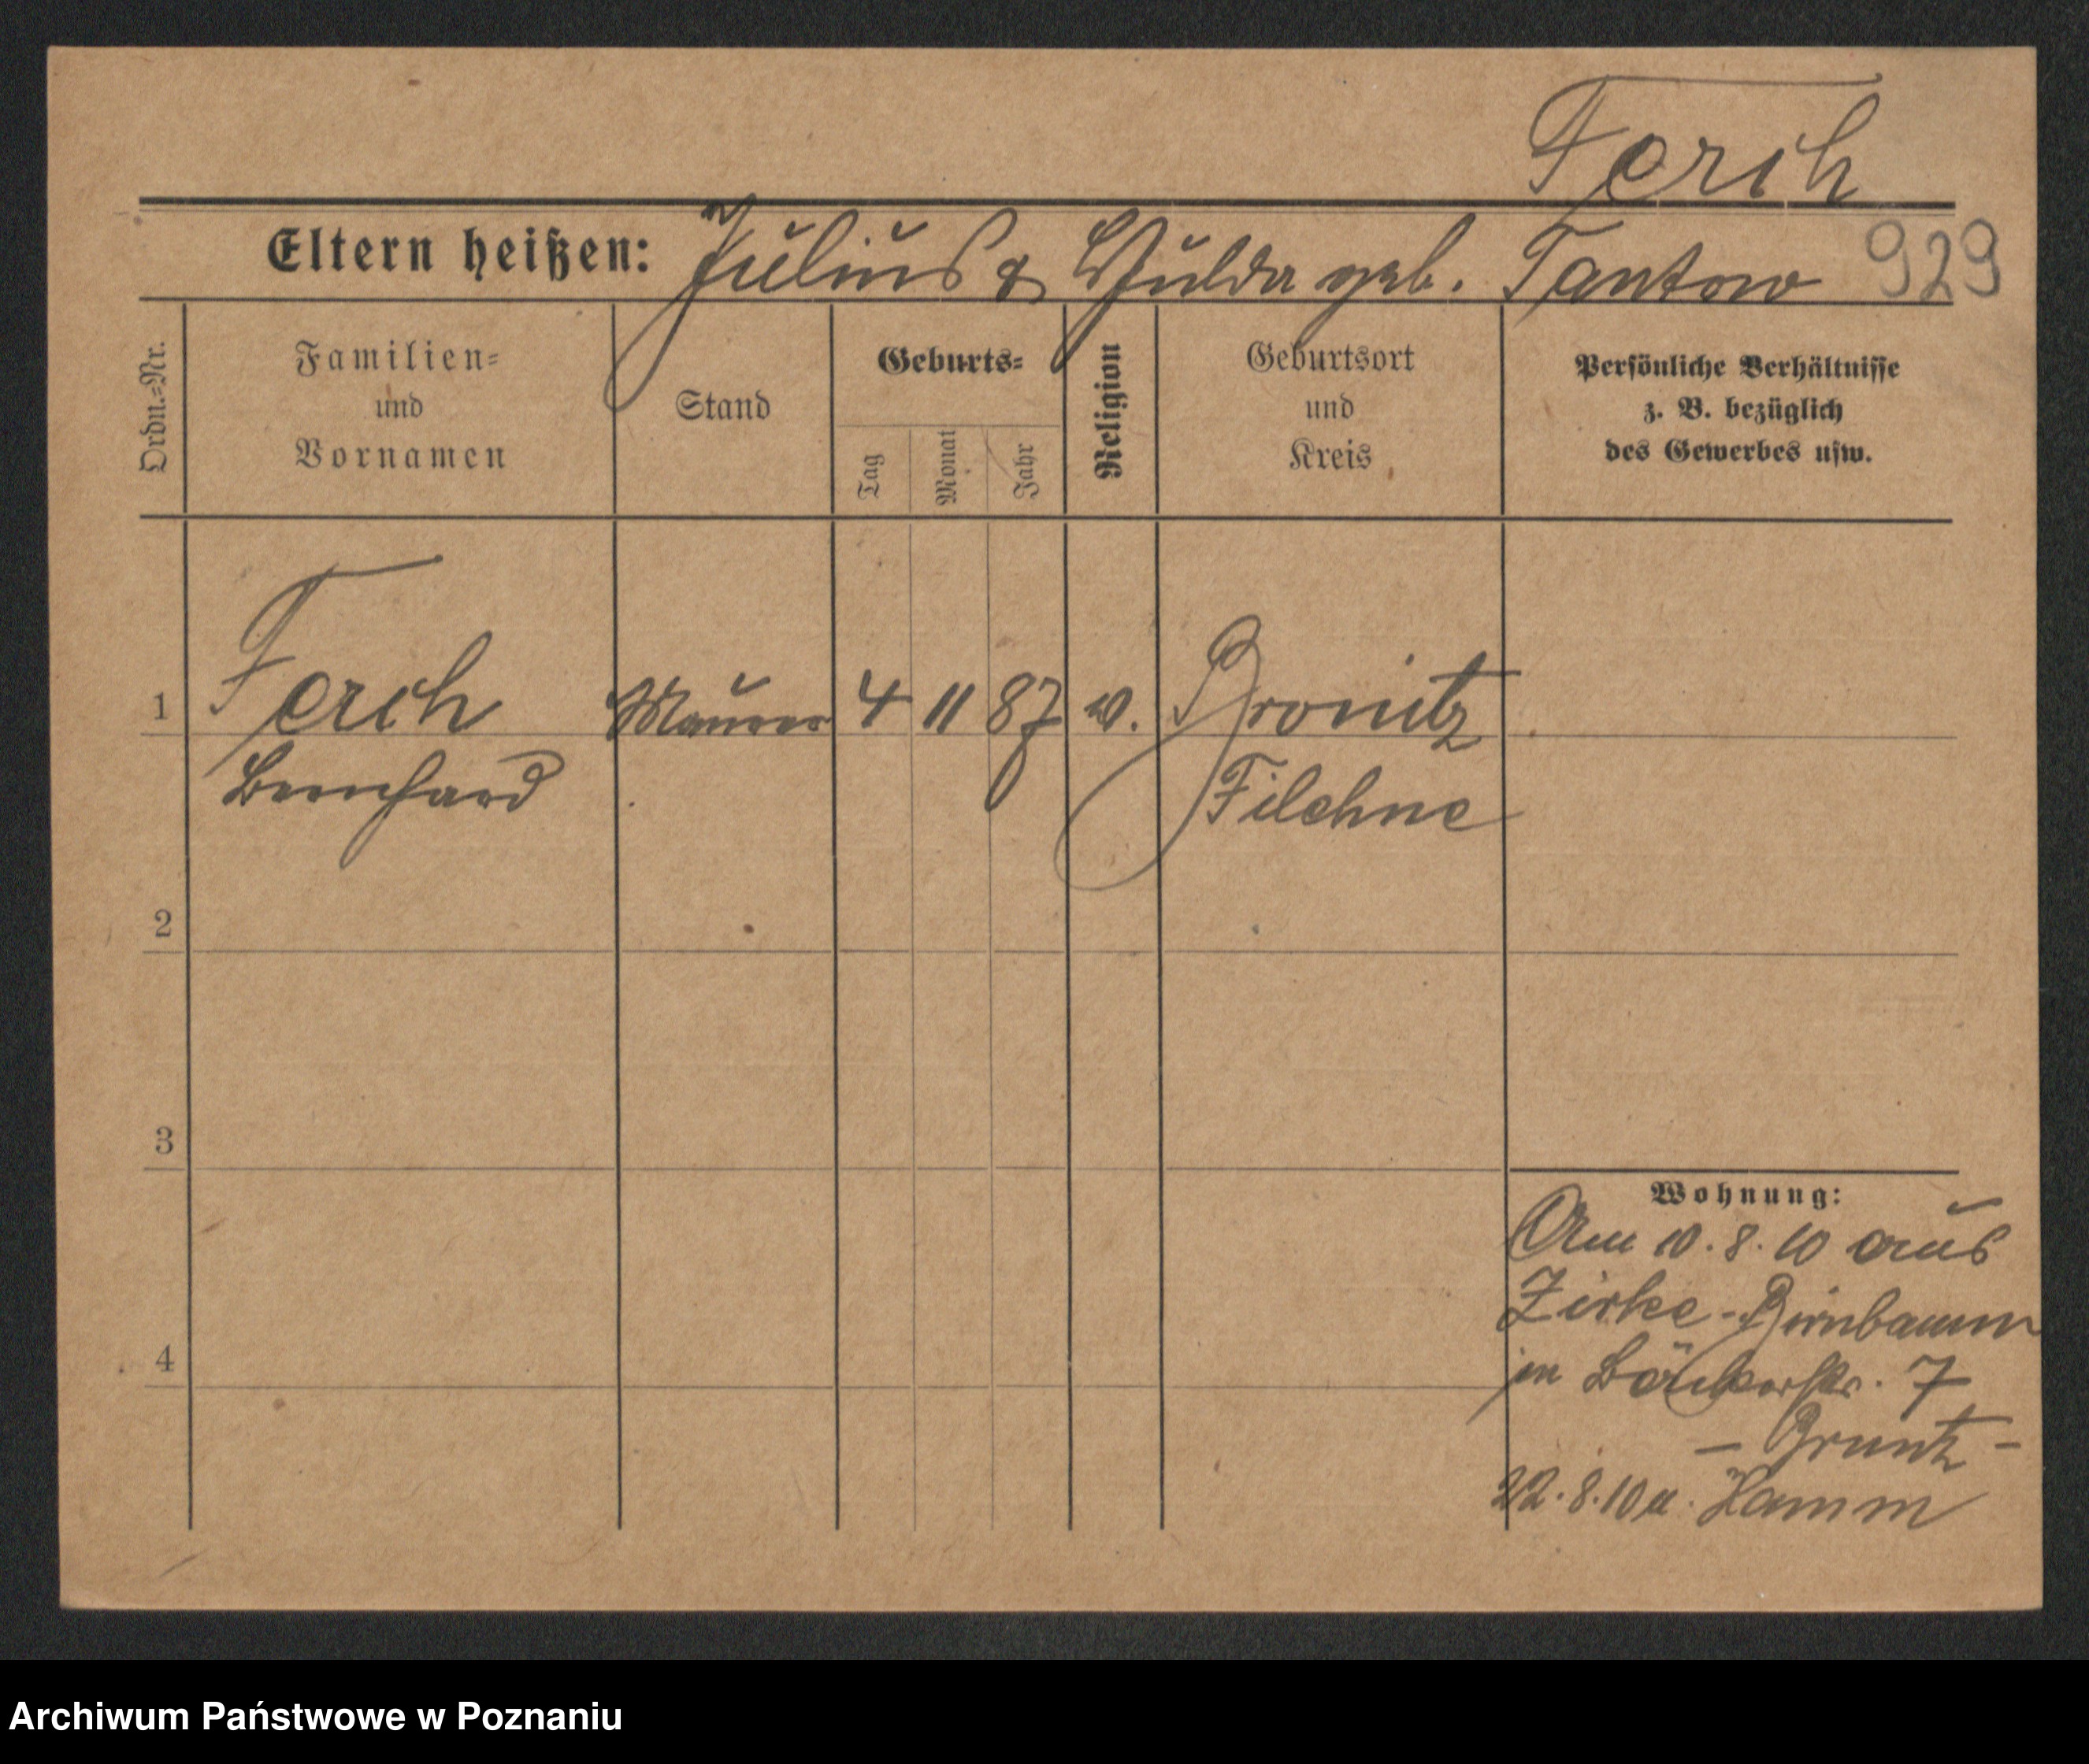 Ferch
Eltern heißen: Julius & Hulda geb. Tantow 929
Ordn.=Nr.
Familien=
und
Vornamen
Stand
Geburts=
Tag
Monat
Jahr
Religion
Geburtsort
und
Kreis
Persönliche Verhältnisse
z. B. bezüglich
des Gewerbes usw.
1 Ferch Maurer 4 11 87 Bronitz
Bernhard Filehne
2
3
4
Wohnung:
Am 10.8.10 aus
Zirke-Birnbaum
in Bäckerstr. 7
22.8.10 n. Hamm
Archiwum Państwowe w Poznaniu